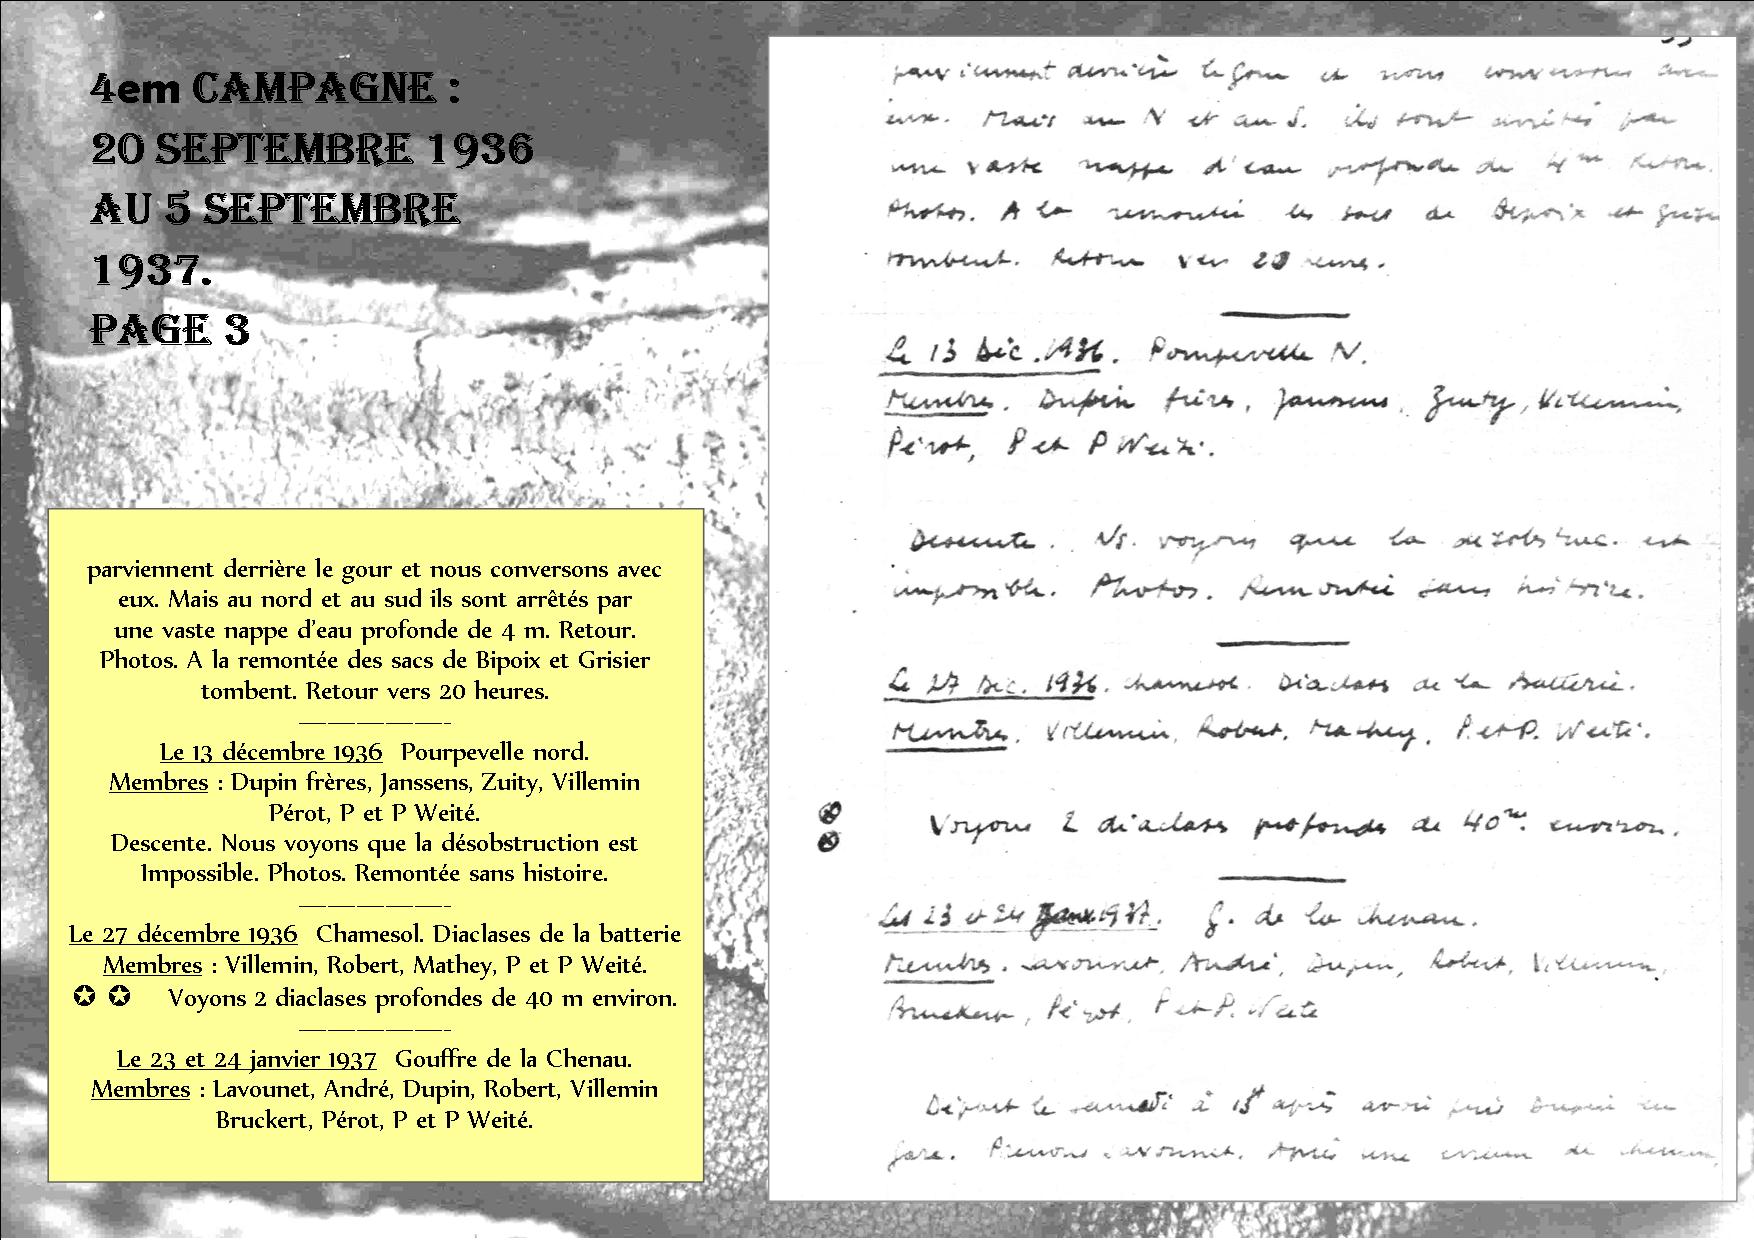 4em CAMPAGNE :
20 SEPTEMBRE 1936
AU 5 SEPTEMBRE
1937.
PAGE 3
parviennent derrière le gour et nous conversons avec
eux. Mais au nord et au sud ils sont arrêtés par
une vaste nappe d'eau profonde de 4 m. Retour.
Photos. A la remontée des sacs de Bipoix et Grisier
tombent. Retour vers 20 heures.
Le 13 décembre 1936 Pourpevelle nord.
Membres : Dupin frères, Janssens, Zuity, Villemin
Pérot, P et P Weité.
Descente. Nous voyons que la désobstruction est
Impossible. Photos. Remontée sans histoire.
Le 27 décembre 1936 Chamesol. Diaclases de la batterie
Membres : Villemin, Robert, Mathey, P et P Weité.
✪ ✪ Voyons 2 diaclases profondes de 40 m environ.
Le 23 et 24 janvier 1937 Gouffre de la Chenau.
Membres : Lavounet, André, Dupin, Robert, Villemin
Bruckert, Pérot, P et P Weité.
parviennent derrière le gour et nous conversons avec
eux. Mais au N et au S. ils sont arrêtés par
une vaste nappe d'eau profonde de 4m Retour.
Photos. A la remontée les sacs de Bipoix et
tombent. Retour vers 20 heures.
Le 13 Déc. 1936. Pourpevelle N.
Membres. Dupin frères, Janssens, Zuity, Villemin,
Pérot, P et P Weité.
Descente. Ns. voyons que la désobstruc. est
impossible. Photos. Remontée sans histoire.
Le 27 Déc. 1936. Chamesol. Diaclases de la Batterie.
Membres. Villemin, Robert, Mathey, P. et P. Weité.
Voyons 2 diaclases profondes de 40m. environ.
Les 23 et 24 Janv. 1937. G. de la Chenau.
Membres. Lavounet, André, Dupin, Robert, Villemin,
Bruckert, Pérot, P et P. Weité
Départ le samedi à après avoir pris Dupin en
gare. Prenons Lavounet. Après une erreur de chemin,